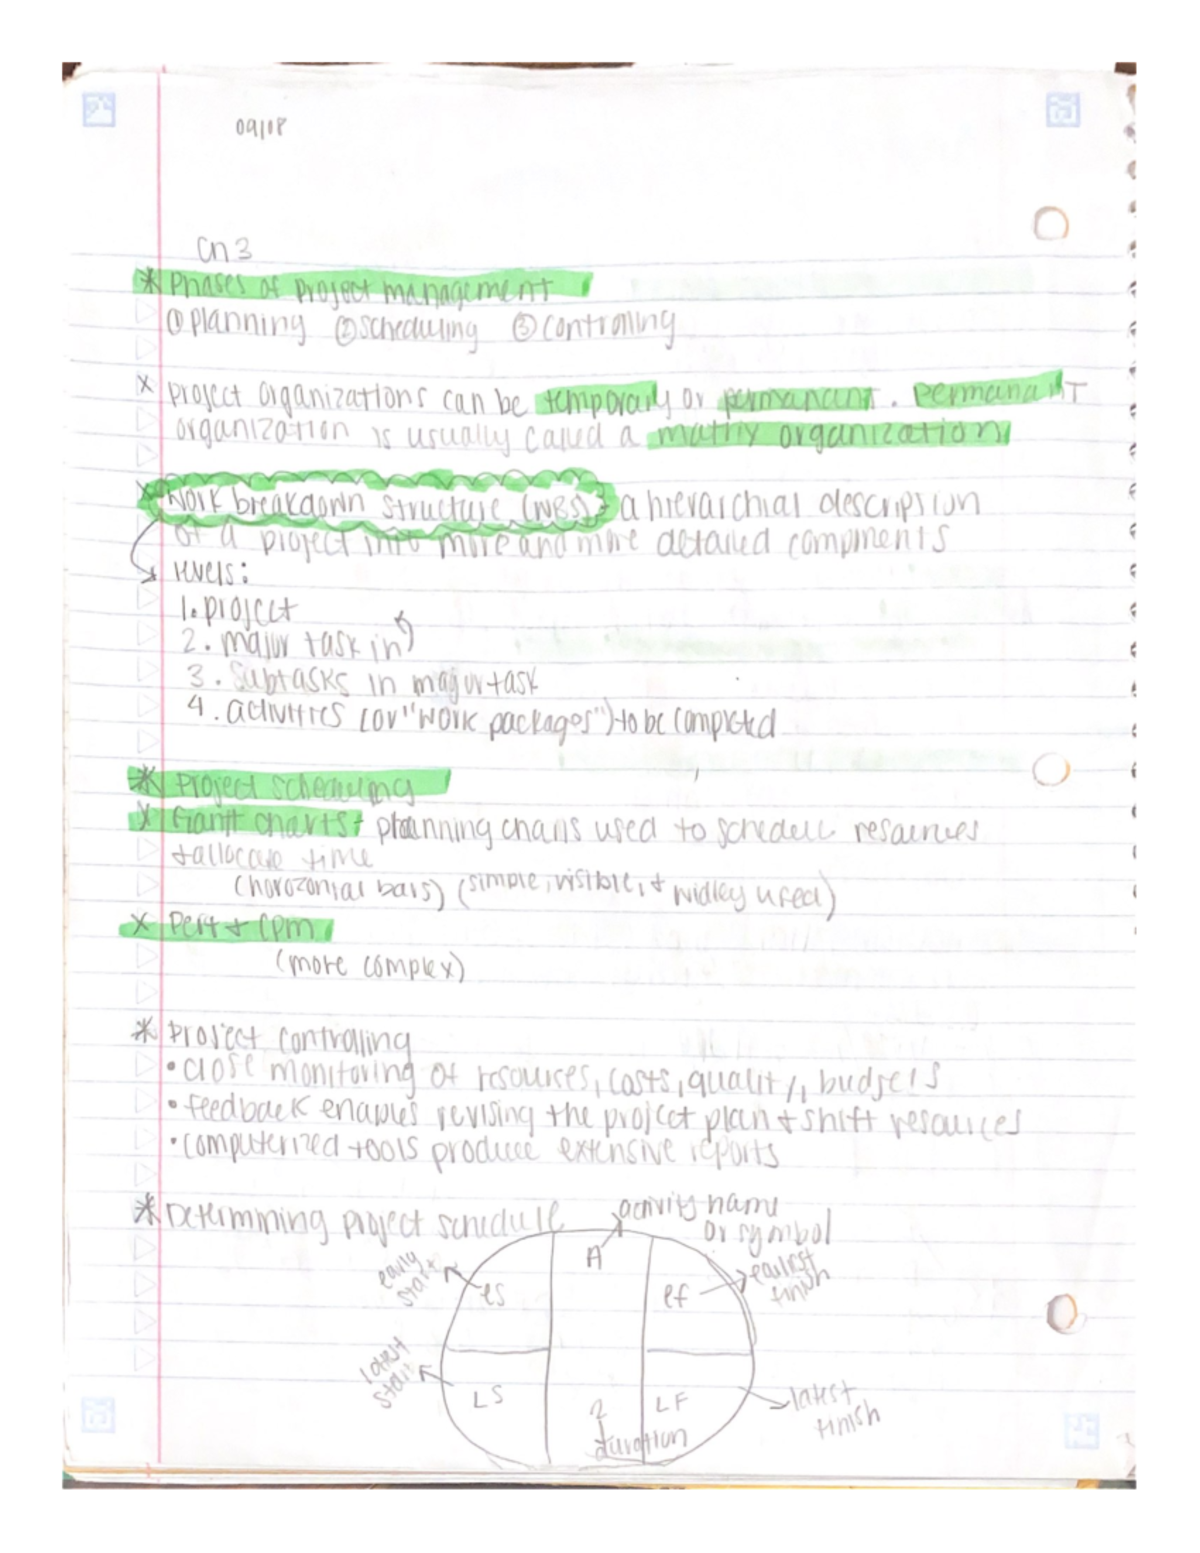 09/08
Ch 3
* Phases of project management
① planning ② scheduling ③ controlling
x project organizations can be temporary or permanant. permanant
organization is usually called a matrix organization
x Work breakdown structure (WBS) - a hierarchial description
of a project into more and more detailed components
levels:
1. project
2. major task in
3. Subtasks in major task
4. activities (or "work packages") to be completed
* Project scheduling
x Gantt charts - planning charts used to schedule resources
+ allocate time
(horozontal bars) (simple, visible, + widley used)
x Pert + CPM
(more complex)
* Project controlling
• close monitoring of resources, costs, quality, budgets
• feedback enables revising the project plan + shift resources
• computerized tools produce extensive reports
* Determining project schedule
activity name
or symbol
early
start
ES
A
EF
earliest
finish
latest
start
LS
2
duration
LF
latest
finish